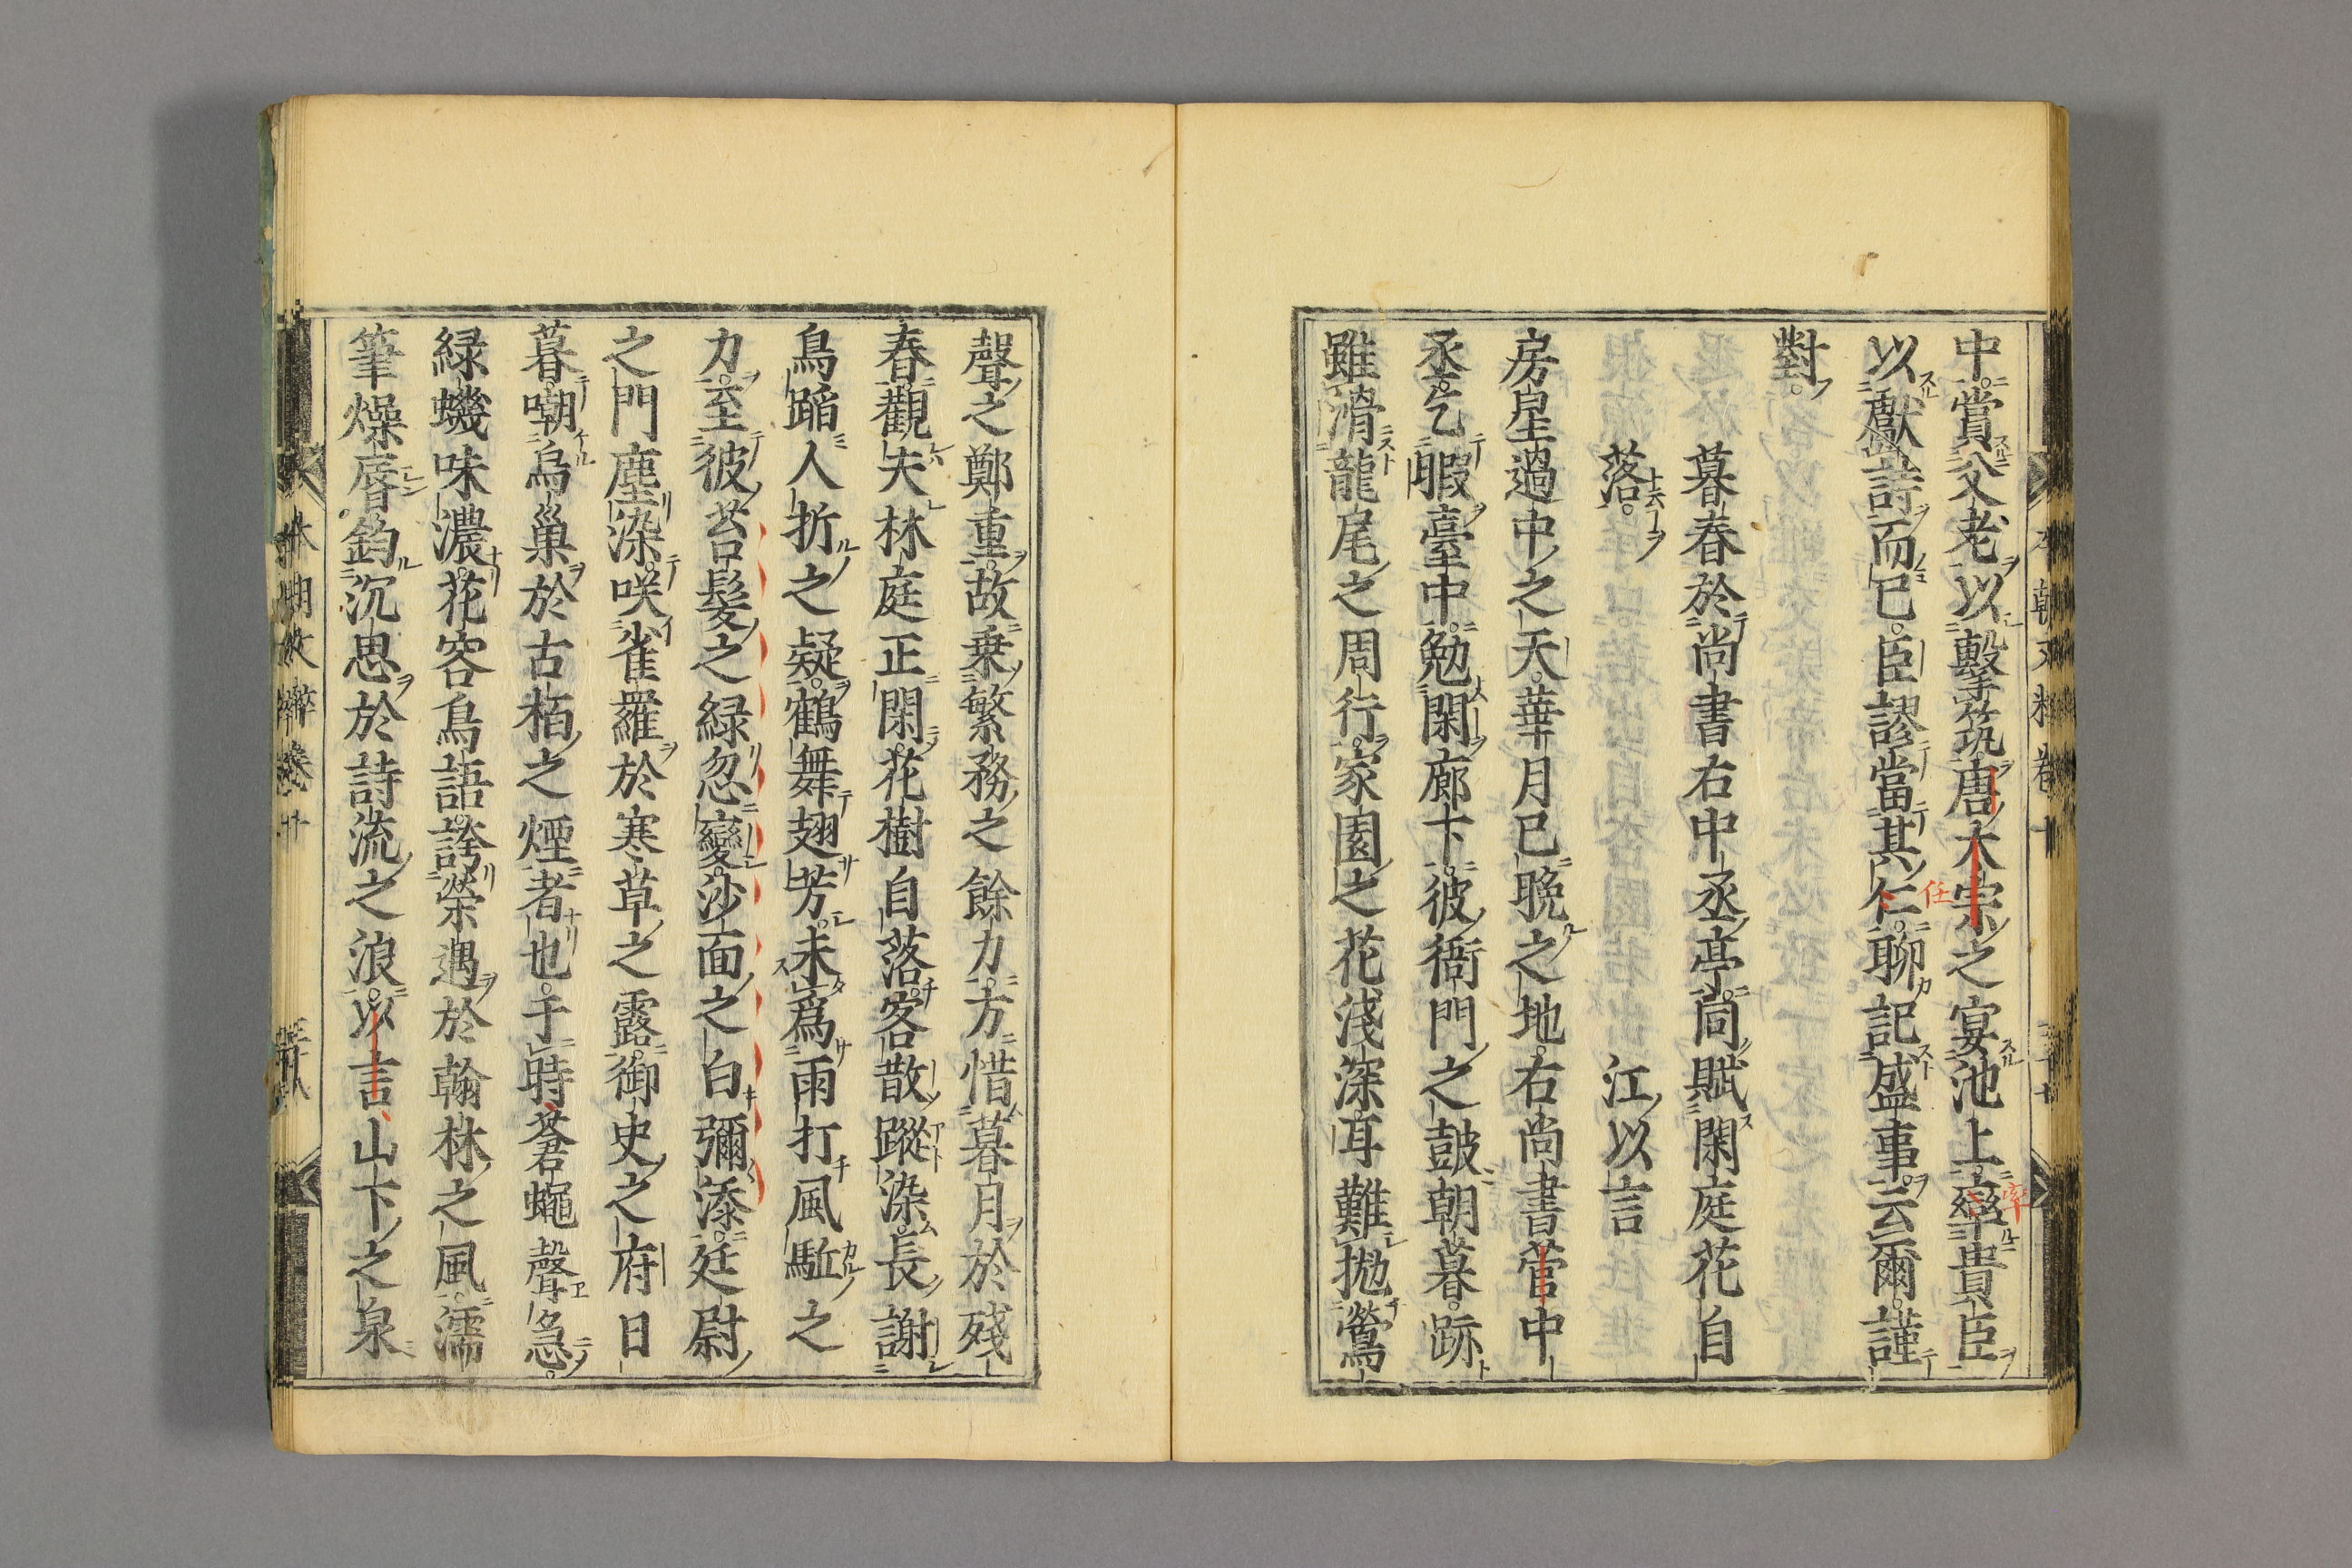 中賞父老以擊筑唐太宗之宴池上率貴臣
以獻詩而已臣謬當其仁聊記盛事云爾謹
對
暮春於尚書右中丞亭同賦閑庭花自
落 江以言
房星過中之天華月已晩之地右尚書菅中
丞乞暇臺中勉閑廊下彼衙門之皷朝暮跡
雖滑龍尾之周行家園之花淺深耳難拋鶯
聲之鄭重故乗繁務之餘力方惜暮月於殘
春觀夫林庭正閑花樹自落客散蹤染長謝
鳥蹈人折之疑鶴舞翅芳未爲雨打風駈之
力至彼苔髮之緑忽變沙面之白彌添廷尉
之門塵染咲雀羅於寒草之露御史之府日
暮嘲烏巢於古栢之煙者也于時蒼蠅聲急
緑蟻味濃花容鳥語誇榮遇於翰林之風濡
筆燥脣釣沉思於詩流之浪以言山下之泉
任
率
本朝文粹卷十
本朝文粹卷十